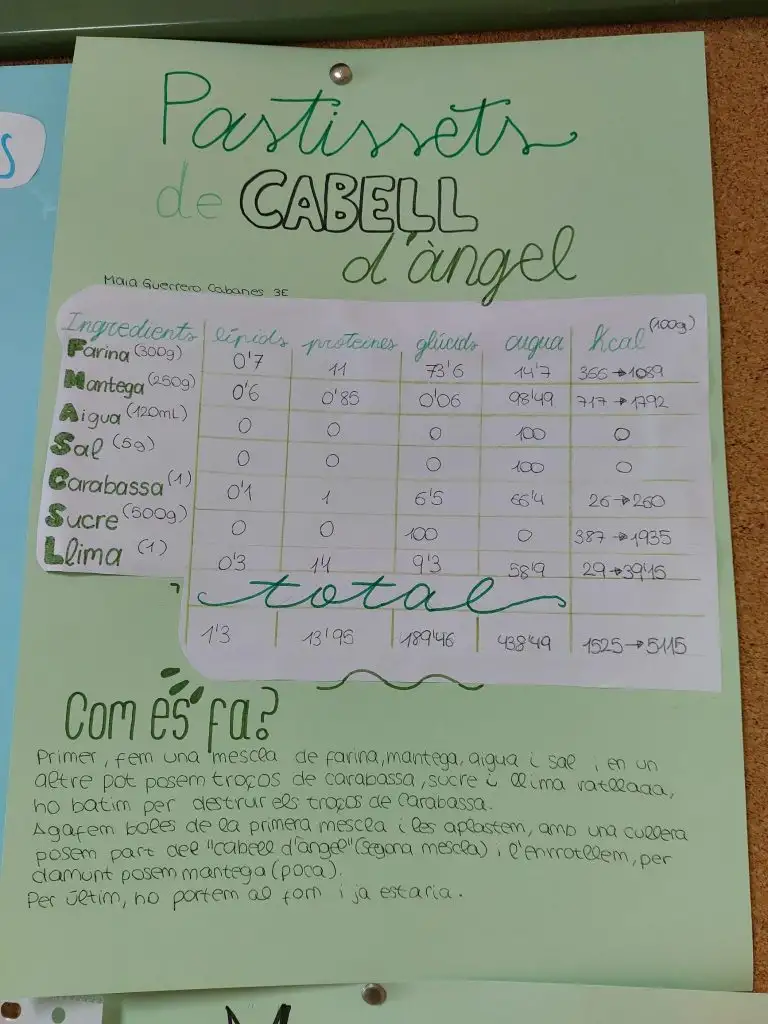 S
Pastissets
de CABELL
d'àngel
Maia Guerrero Cabanes 3E
Ingredients lípids proteïnes glúcids augua Kcal (100g)
Farina (300g) 0'7 11 73'6 14'7 366→1089
Mantega (250g) 0'6 0'85 0'06 98'49 717→1792
Aigua (120mL) 0 0 0 100 0
Sal (5g) 0 0 0 100 0
Carabassa (1) 0'1 1 6'5 66'4 26→260
Sucre (500g) 0 0 100 0 387→1935
Llima (1) 0'3 1'1 9'3 58'9 29→39'15
total
1'3 13'95 189'46 438'49 1525→5115
Com es fa?
Primer, fem una mescla de farina, mantega, aigua i sal i en un
altre pot posem troços de carabassa, sucre i llima ratllada,
ho batim per destrur els troços de Carabassa.
Agafem boles de la primera mescla i les aplastem, amb una cullera
posem part del "cabell d'àngel" (segona mescla) i l'enrrotllem, per
damunt posem mantega (poca).
Per últim, ho portem al forn i ja estaria.